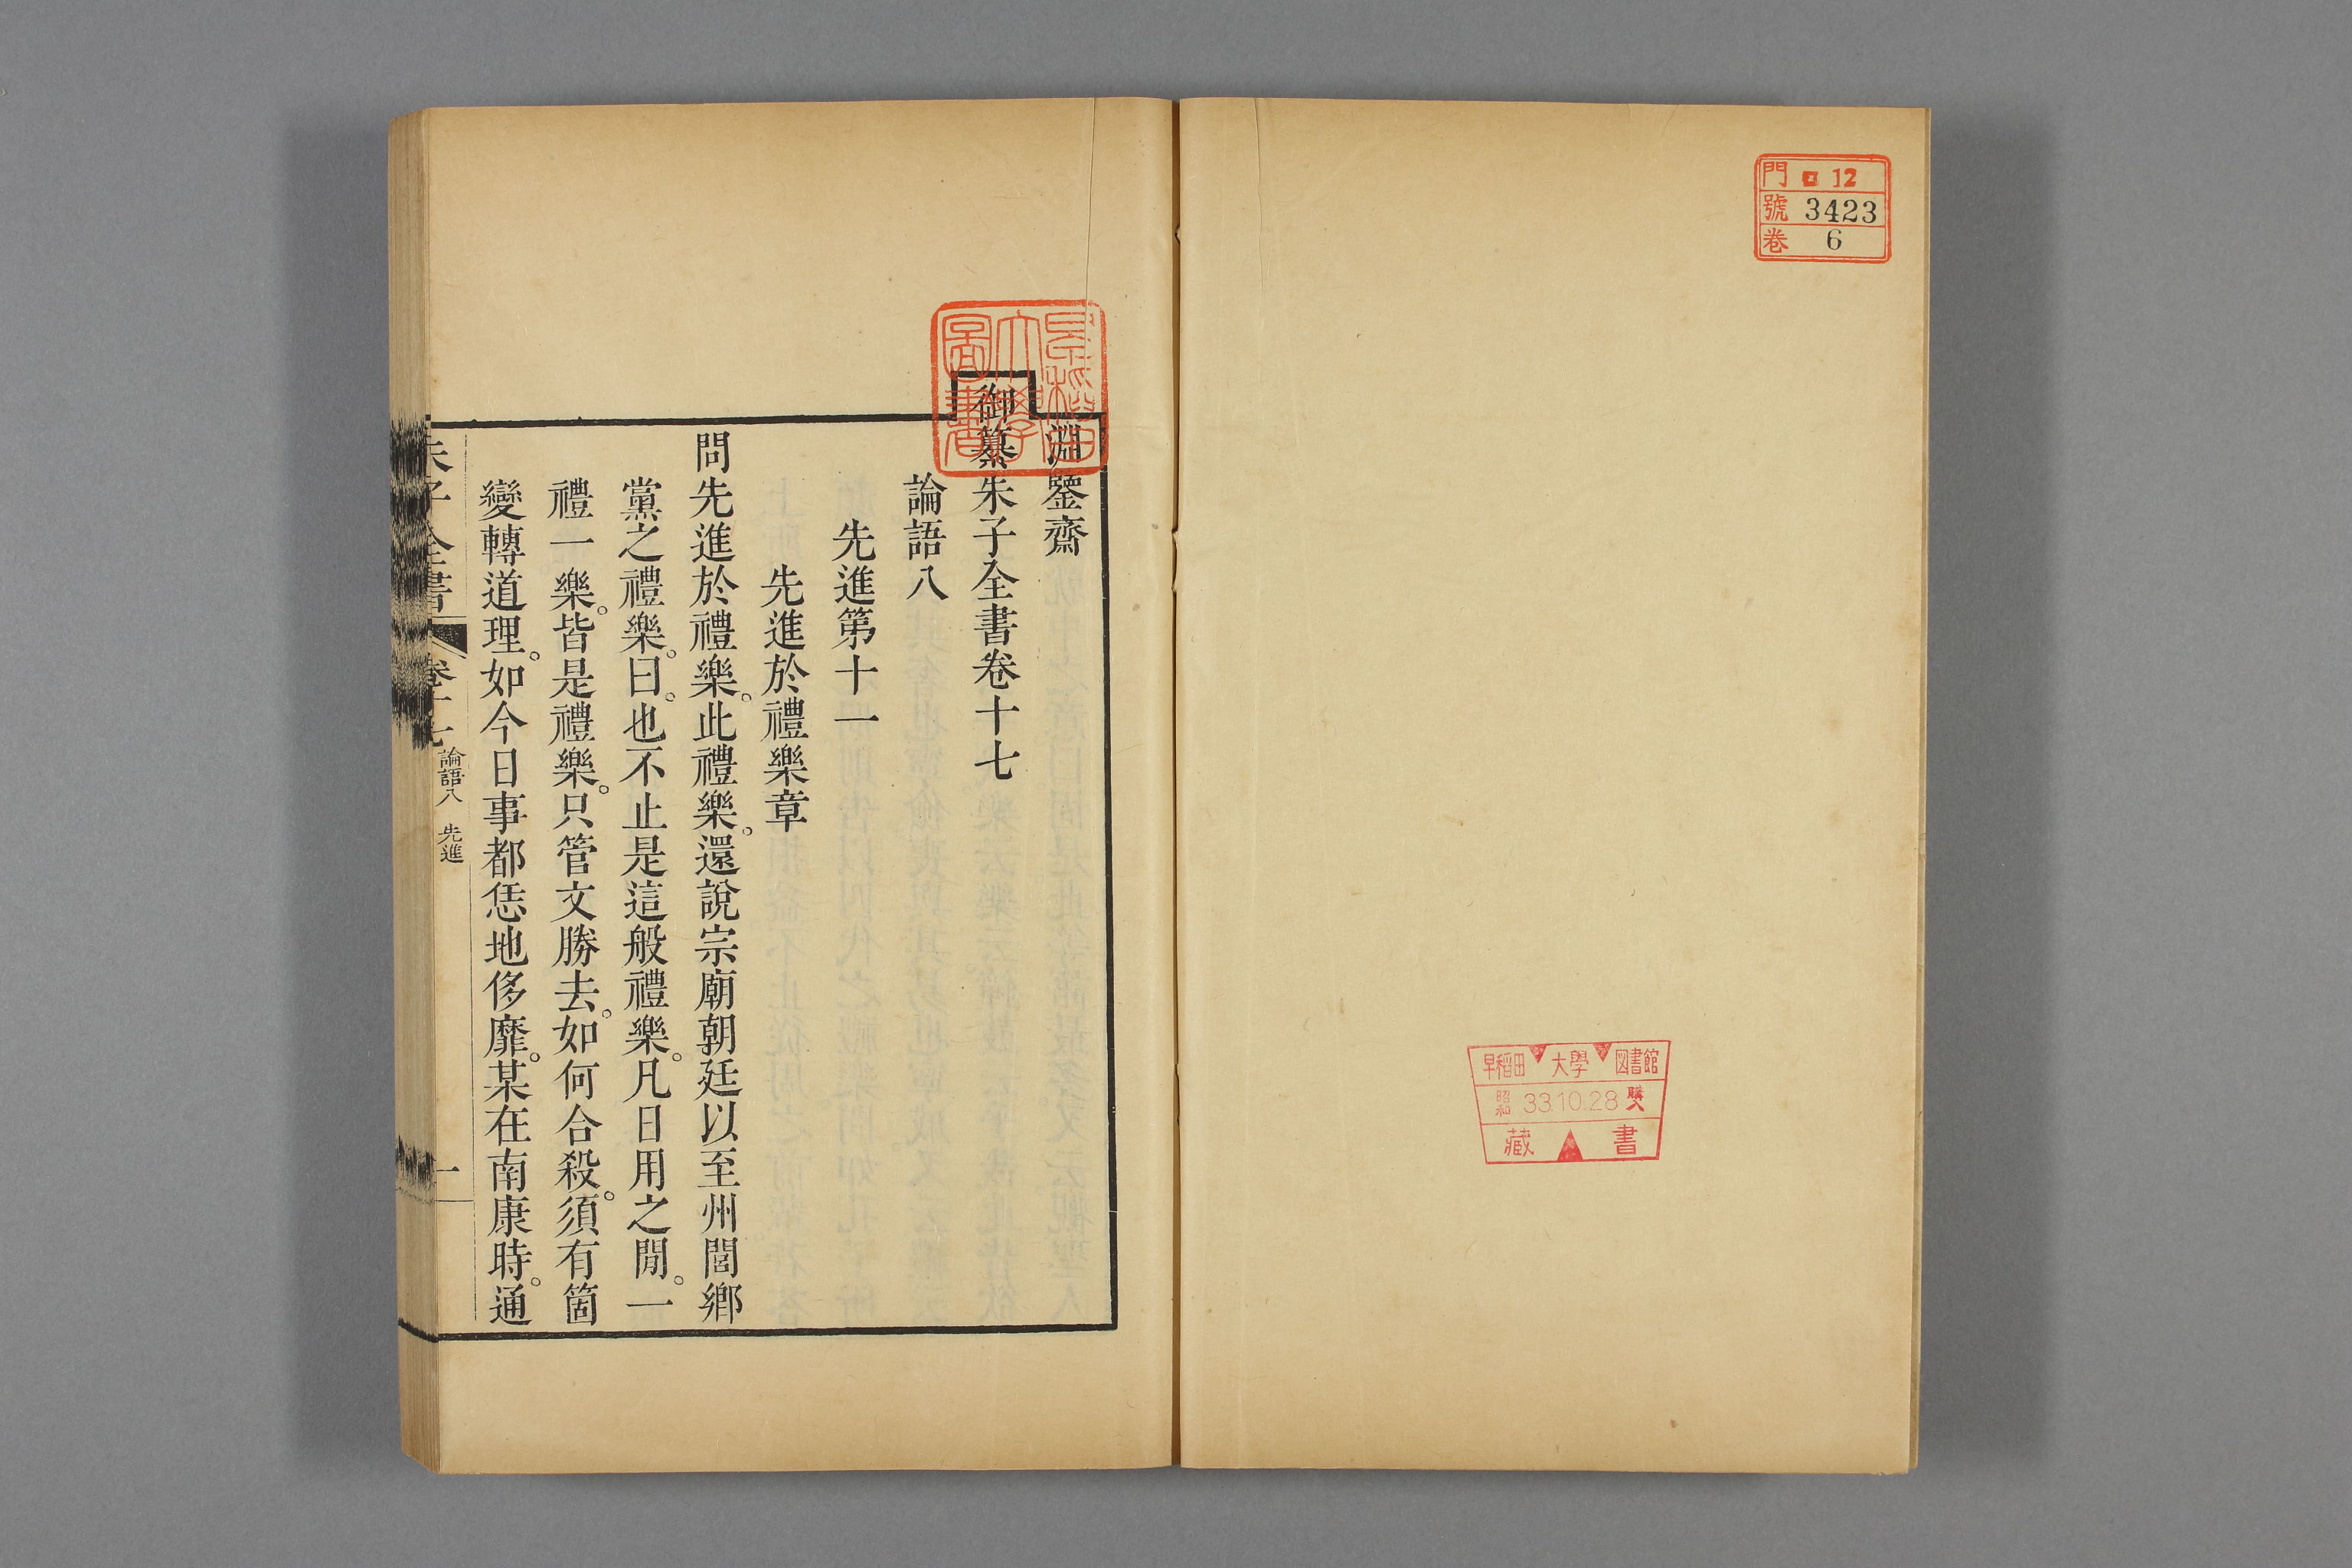 門 ロ 12
號 3423
卷 6
早稻田 大學 図書館
昭和 33.10.28 購入
藏 書
早稻田
大學
圖書
淵鑒齋
御纂朱子全書卷十七
論語八
先進第十一
先進於禮樂章
問先進於禮樂。此禮樂。還說宗廟朝廷以至州閭鄉
黨之禮樂。曰。也不止是這般禮樂。凡日用之閒。一
禮一樂。皆是禮樂。只管文勝去。如何合殺。須有箇
變轉道理。如今日事都恁地侈靡。某在南康時。通
朱子全書 卷十七 論語八 先進 一